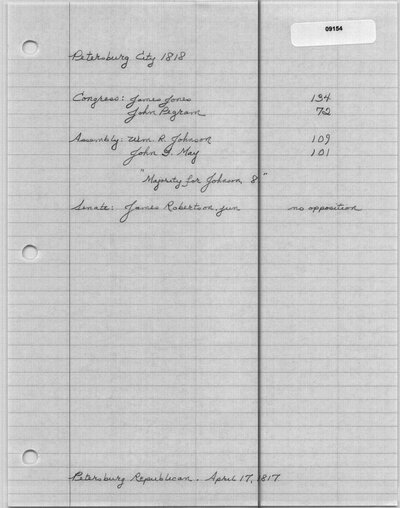 09154
Petersburg City 1818
Congress: James Jones 134
John Pegram 72
Assembly: Wm. R. Johnson 109
John G. May 101
"Majority for Johnson 8"
Senate: James Robertson jun no opposition
Petersburg Republican. April 17, 1817